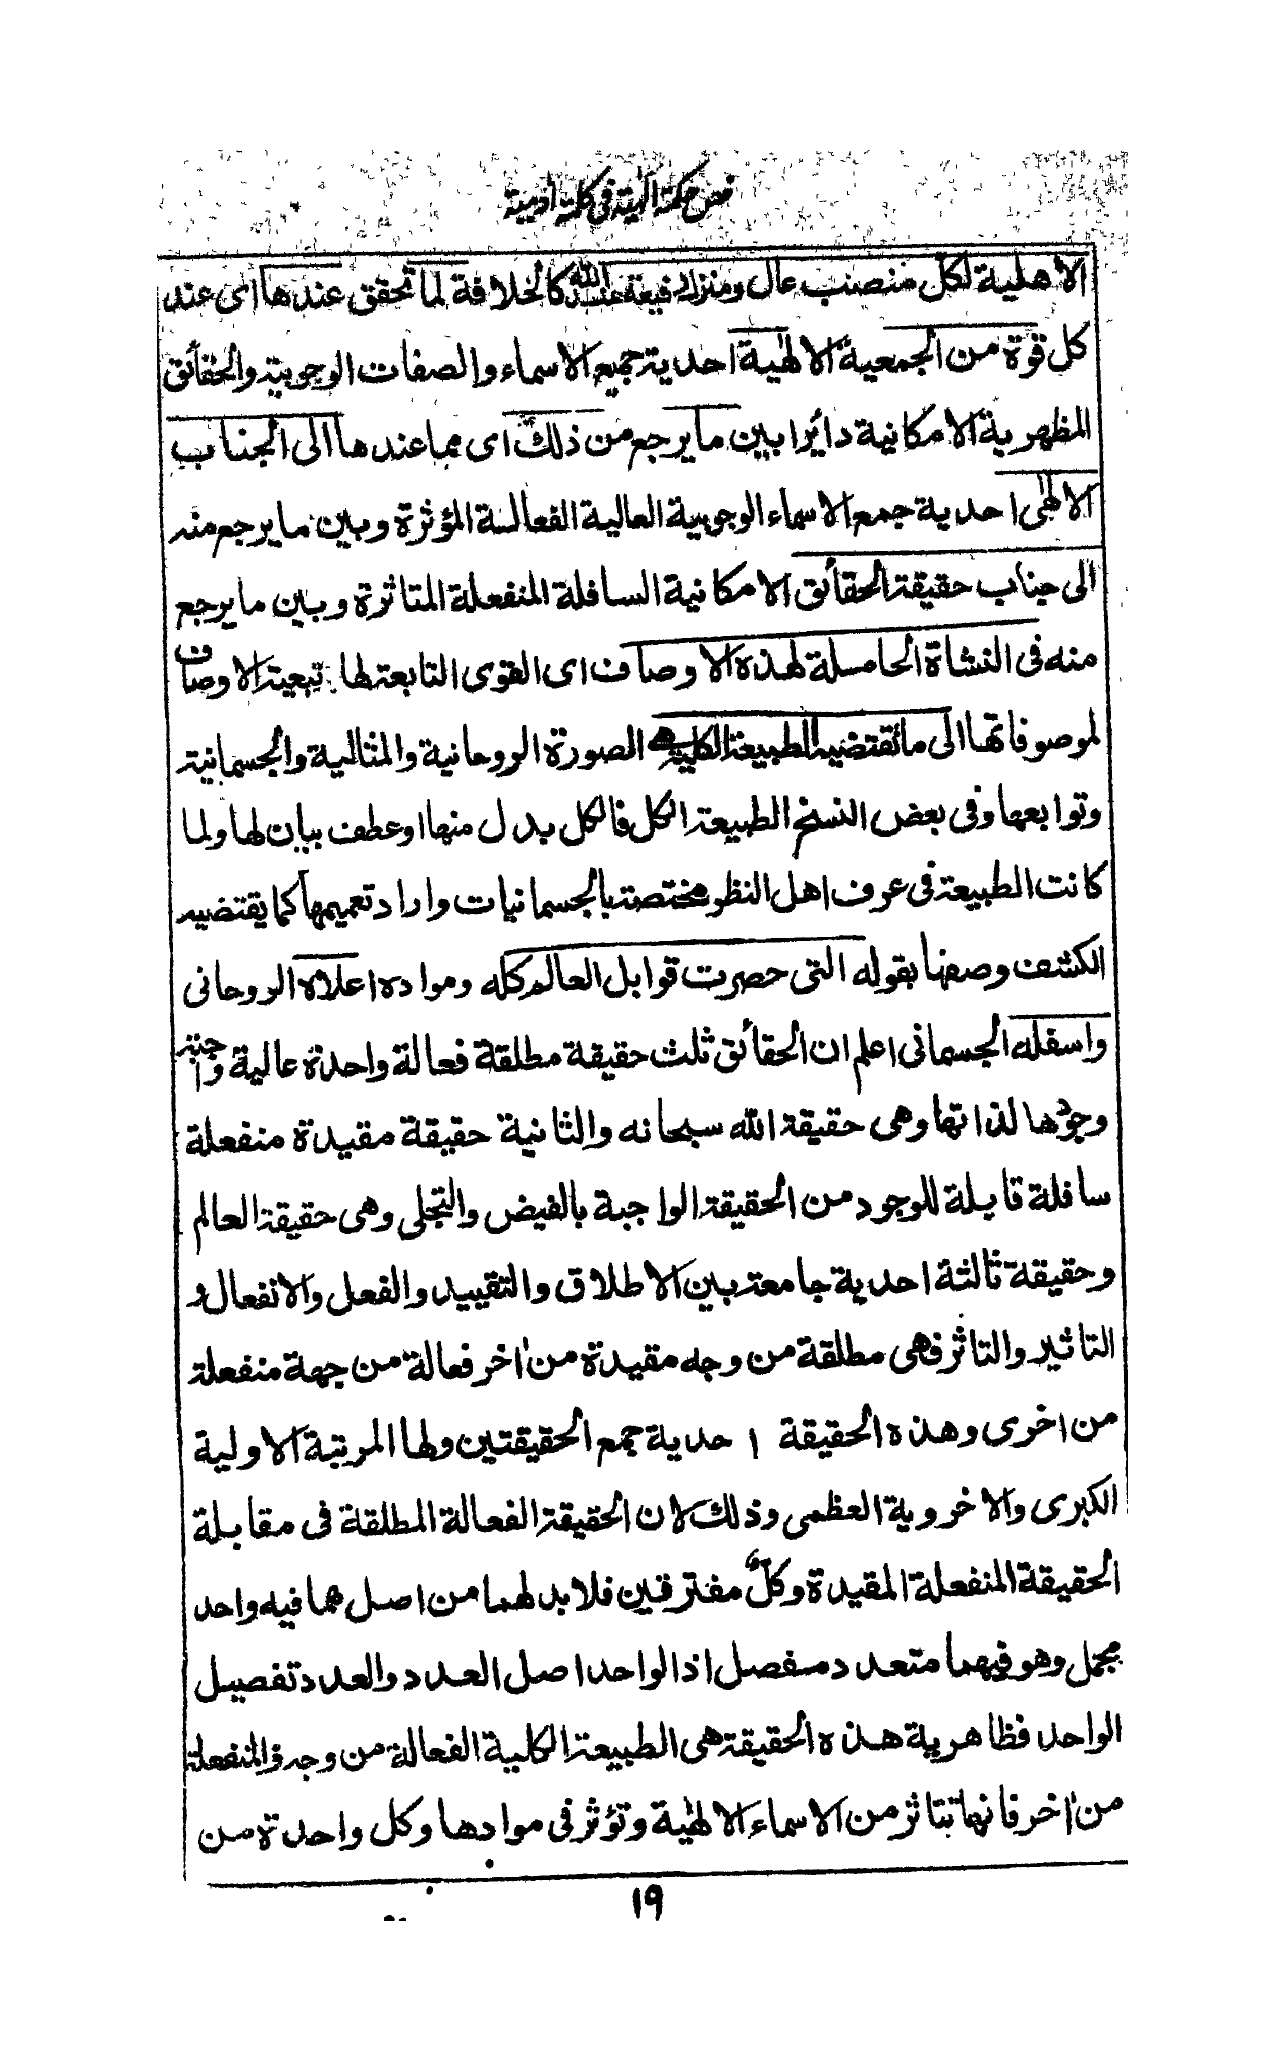 فص حكمة الهية في كلمة ادمية
الاهلية لكل منصب عال ومنزلة رفيعة عند الله كالخلافة لما تحقق عندها اى عند
كل قوة من الجمعية الالهية احدية جميع الاسماء والصفات الوجوبية والحقائق
المظهرية الامكانية دائرا بين ما يرجع من ذلك اى مما عندها الى الجناب
الالهى احدية جمع الاسماء الوجوبية العالية الفعالة المؤثرة وبين ما يرجع منه
الى جناب حقيقة الحقائق الامكانية السافلة المنفعلة المتاثرة وبين ما يرجع
منه فى النشاة الحاملة لهذه الاوصاف اى القوى التابعة لها تبعية الاوصاف
لموصوفاتها الى ما تقتضيه الطبيعة الكلية هى الصورة الروحانية والمثالية والجسمانية
وتوابعها وفى بعض النسخ الطبيعة الكل فالكل بدل منها او عطف بيان لها ولما
كانت الطبيعة فى عرف اهل النظر مختصة بالجسمانيات واراد تعميمها كما يقتضيه
الكشف وصفها بقوله التى حصرت قوابل العالم كله ومواده اعلاه الروحانى
واسفله الجسمانى اعلم ان الحقائق ثلث حقيقة مطلقة فعالة واحدة عالية واجبة
وجودها لذاتها وهى حقيقة الله سبحانه والثانية حقيقة مقيدة منفعلة
سافلة قابلة للوجود من الحقيقة الواجبة بالفيض والتجلى وهى حقيقة العالم
وحقيقة ثالثة احدية جامعة بين الاطلاق والتقييد والفعل والانفعال و
التاثير والتاثر فهى مطلقة من وجه مقيدة من اخر فعالة من جهة منفعلة
من اخرى وهذه الحقيقة احدية جمع الحقيقتين ولها المرتبة الاولية
الكبرى والاخروية العظمى وذلك لان الحقيقة الفعالة المطلقة فى مقابلة
الحقيقة المنفعلة المقيدة وكل مفترقين فلا بد لهما من اصل هما فيه واحد
مجمل وهو فيهما متعدد مفصل اذ الواحد اصل العدد والعدد تفصيل
الواحد فظاهرية هذه الحقيقة هى الطبيعة الكلية الفعالة من وجه والمنفعلة
من اخر فانها تتاثر من الاسماء الالهية وتؤثر فى موادها وكل واحدة من
١٩